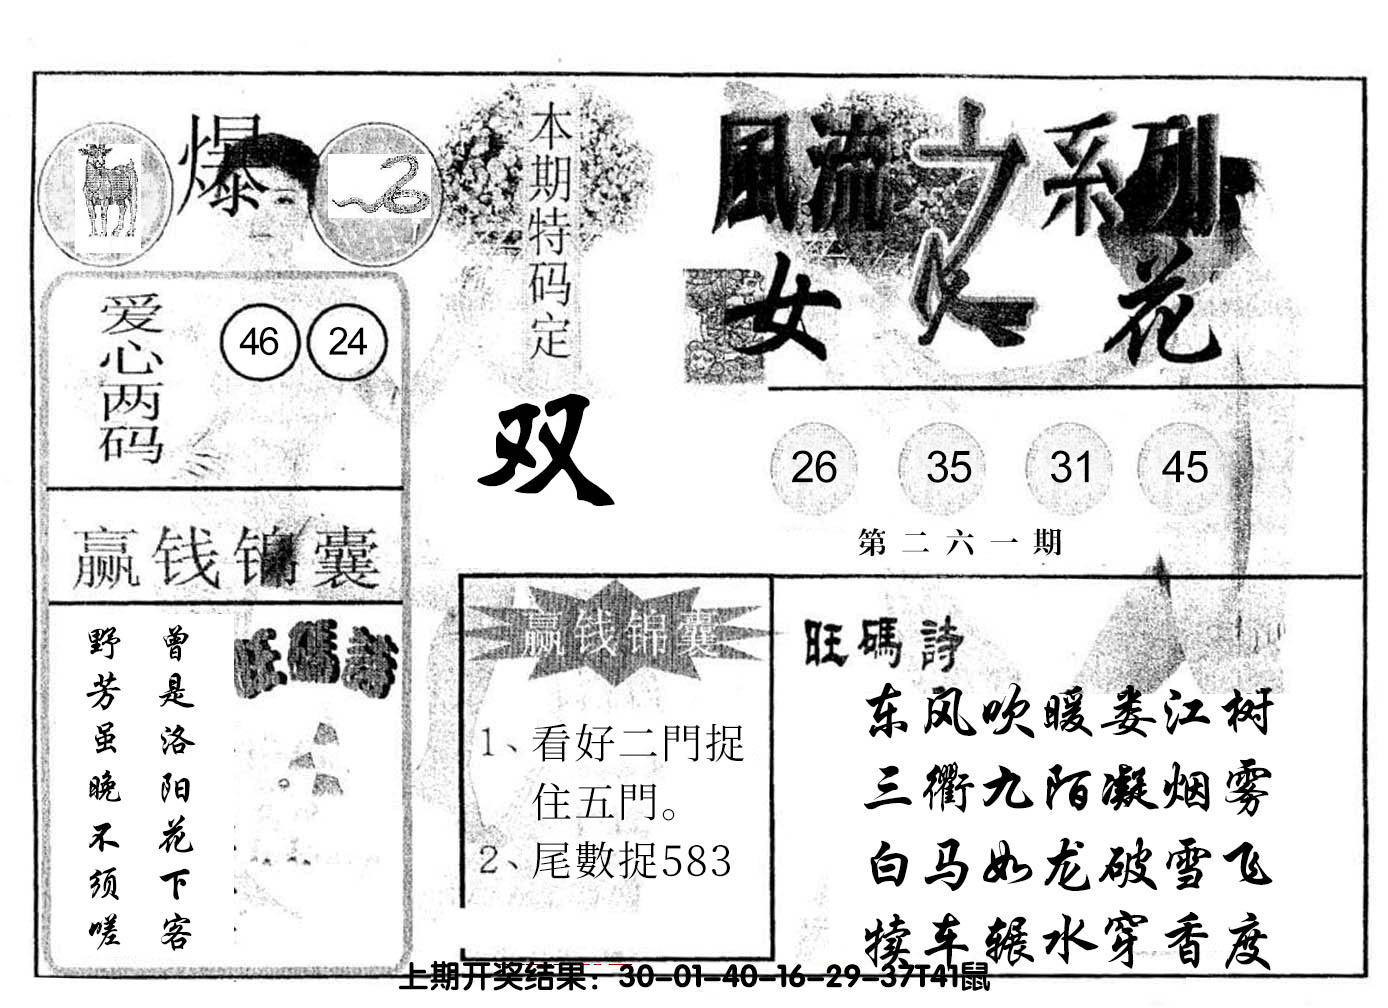 爆
本期特码定
双
風流之系列
女人花
爱心两码
46 24
26 35 31 45
第二六一期
赢钱锦囊
曾是洛阳花下客
野芳虽晚不须嗟
旺碼詩
赢钱锦囊
1、看好二門捉
住五門。
2、尾數捉583
旺碼詩
东风吹暖娄江树
三衢九陌凝烟雾
白马如龙破雪飞
犊车辗水穿香度
上期开奖结果：30-01-40-16-29-37T41鼠